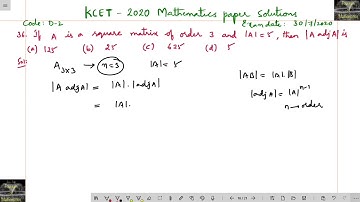 KCET - 2020 Mathematics paper solutions
Code: D-2
Exam date: 30/7/2020
36. If A is a square matrix of order 3 and |A|=5, then |A adjA| is
(a) 125 (b) 25 (c) 625 (d) 5
Sol:
A₃ₓ₃ → n=3 |A|=5
|AB| = |A|.|B|
|A adjA| = |A|.|adjA|
|adjA| = |A|ⁿ⁻¹
n→order
= |A|.